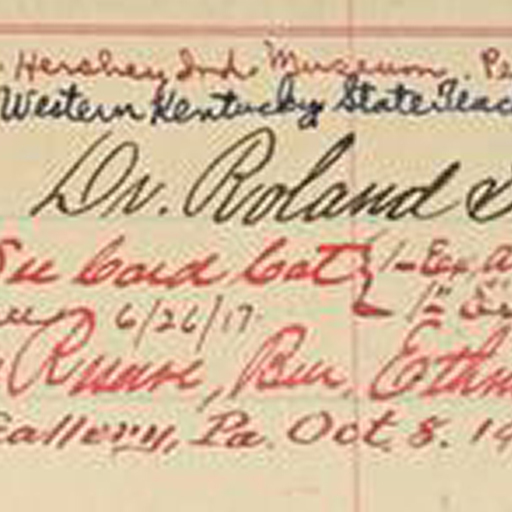 Hershey Ind. Museum. Pe
Western Kentucky State Teac
Dr. Roland S
See Card Cat { 1-Ex. a
6/26/17
Bur. Ethn
Gallery, Pa. Oct. 8. 19